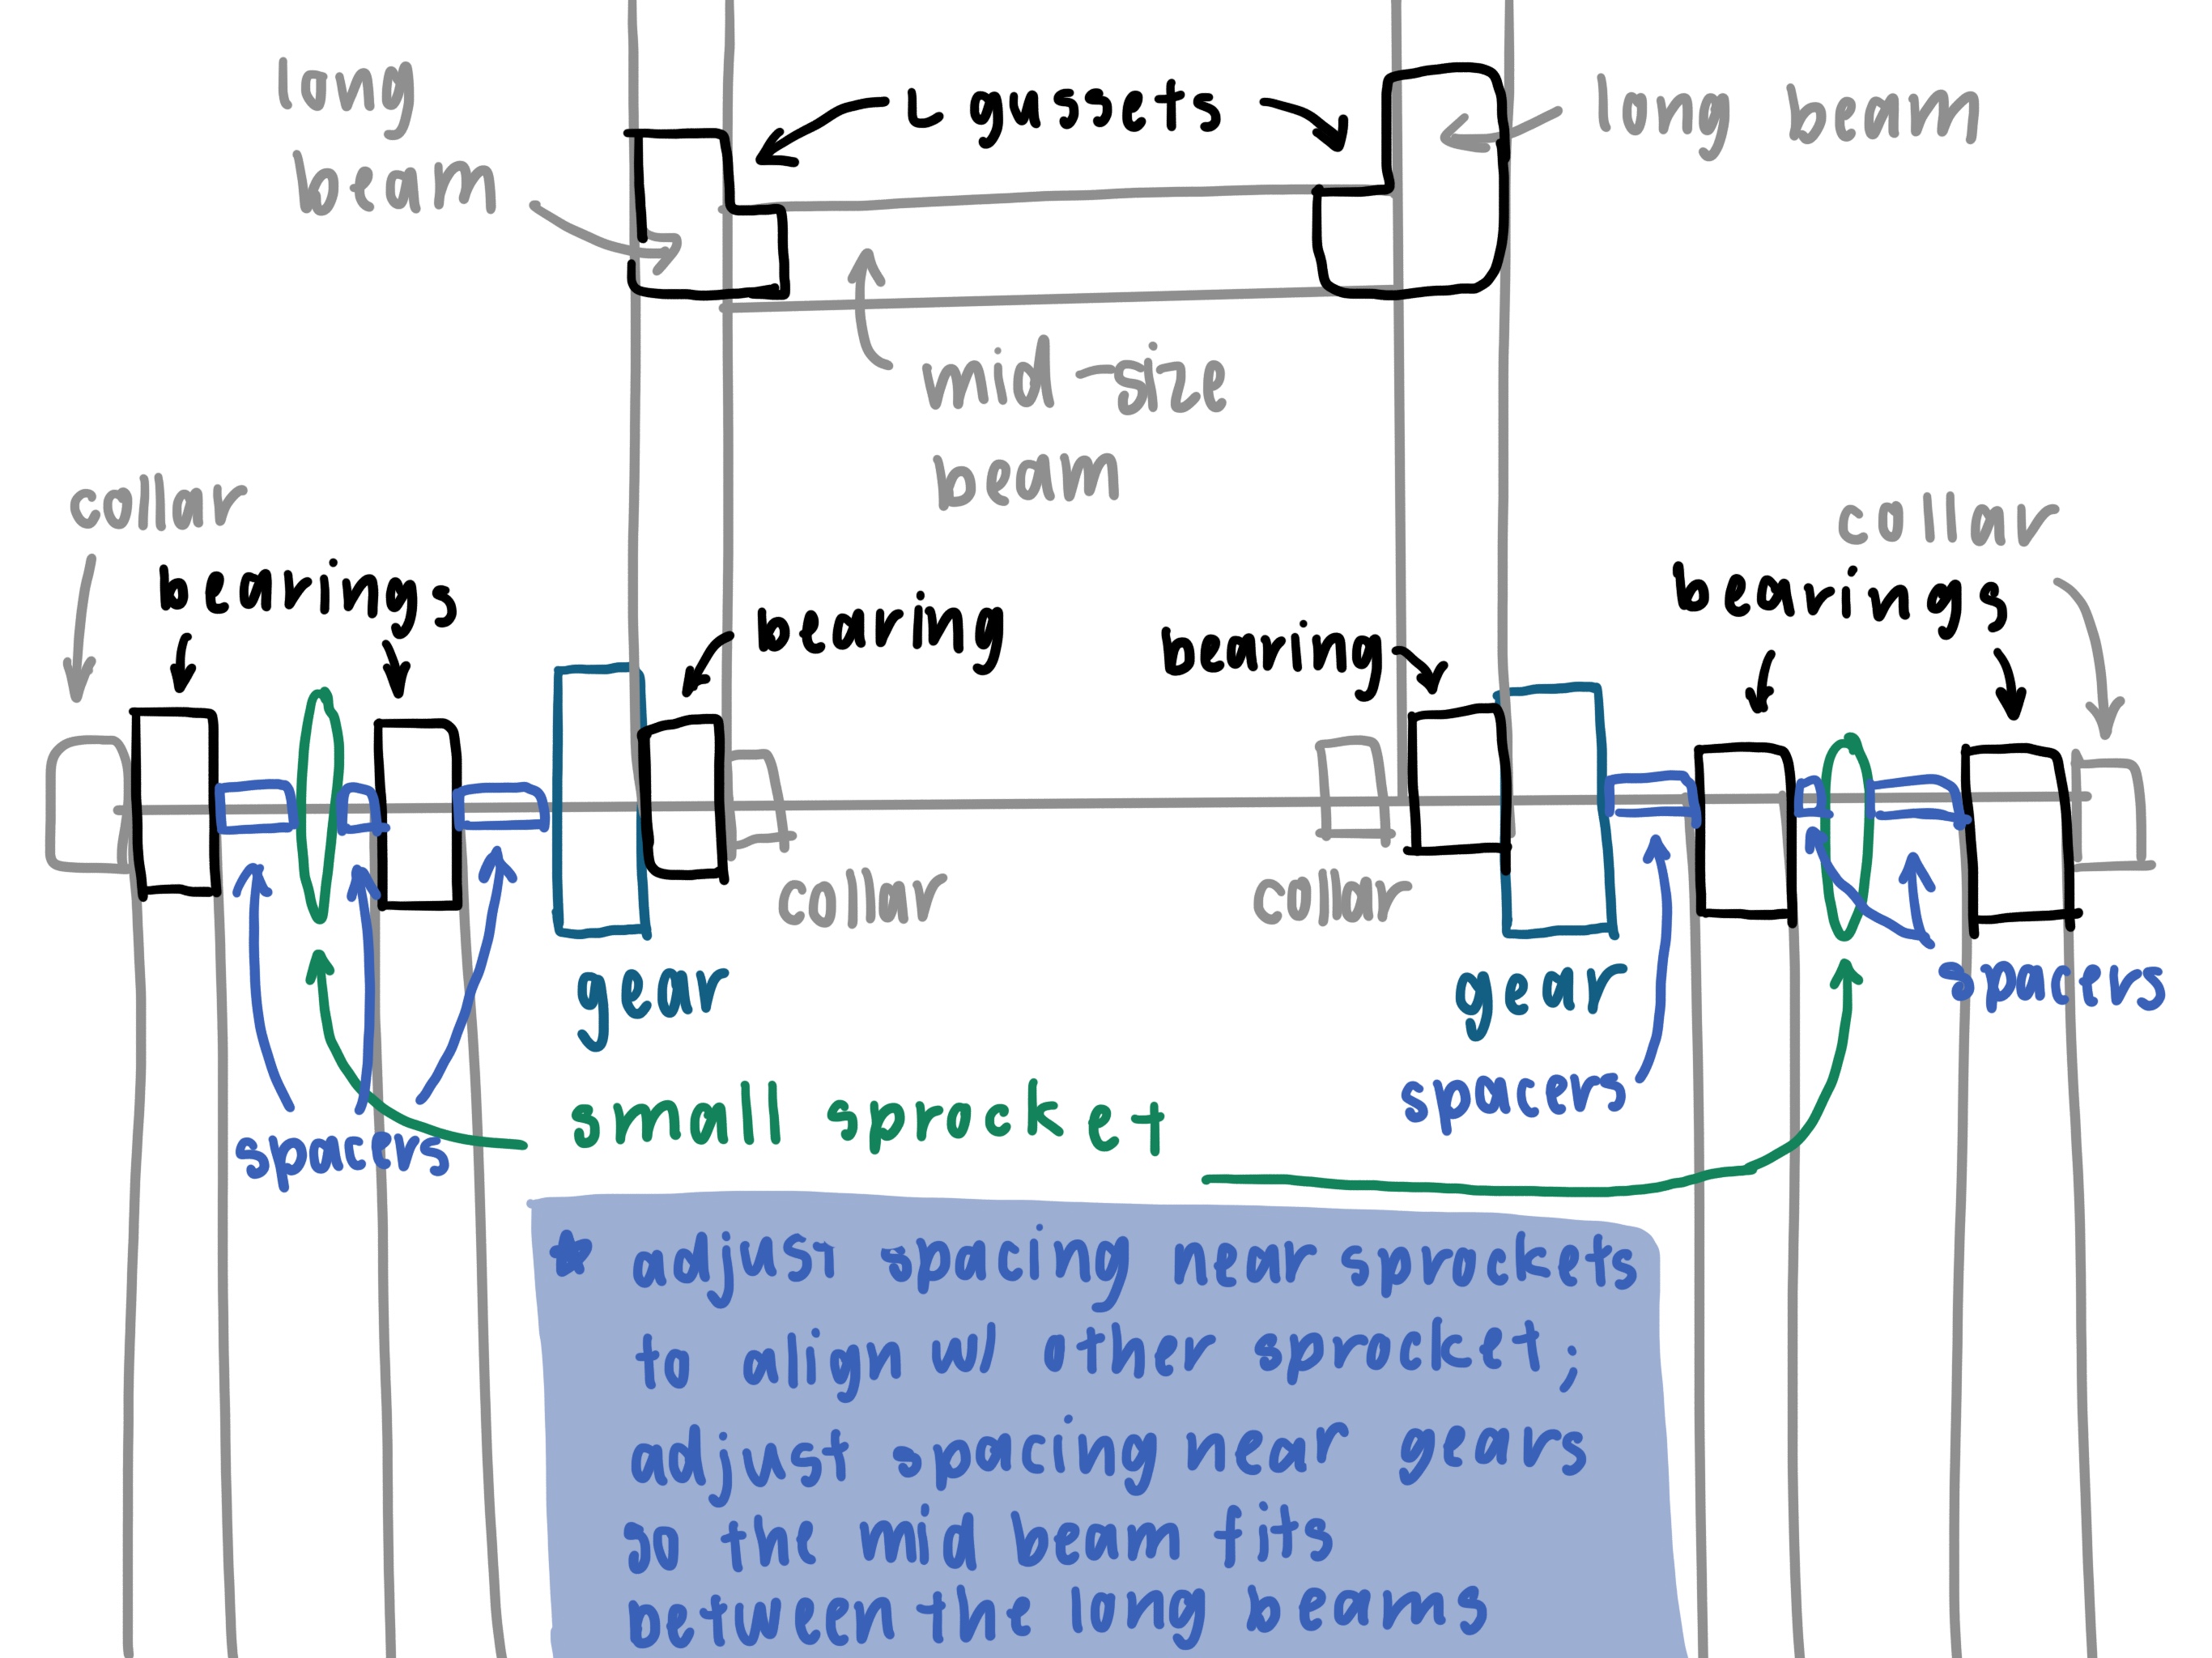 long
beam
L gussets
long beam
mid-size
beam
collar
bearings
bearing
bearing
collar
bearings
collar
collar
gear
gear
spacers
small sprocket
spacers
spacers
* adjust spacing near sprockets
to align w/ other sprocket;
adjust spacing near gears
so the mid beam fits
between the long beams